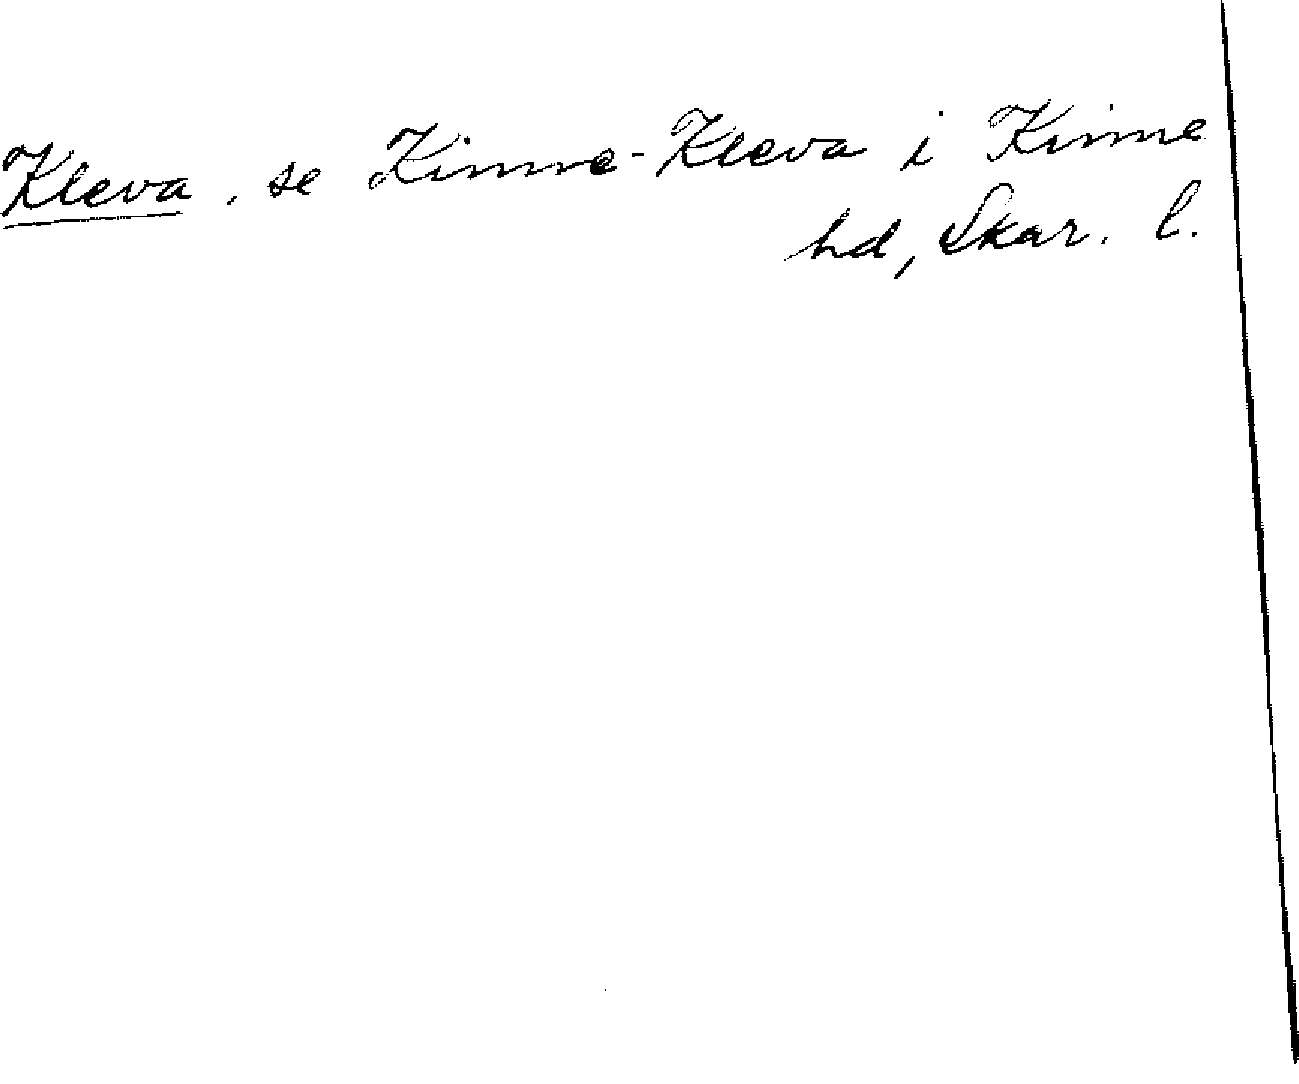 Kleva, se Kinne-Kleva i Kinne
hd, Skar. l.